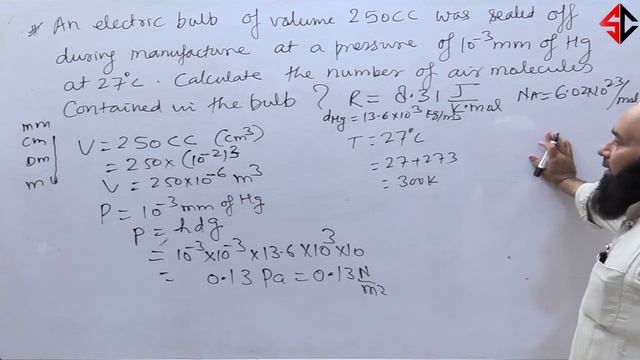 * An electric bulb of volume 250CC was sealed off
during manufacture at a pressure of 10⁻³mm of Hg
at 27°c. Calculate the number of air molecules
Contained in the bulb ? R = 8.31 J/K·mol NA=6.02×10²³/mol
dHg=13.6×10³ Kg/m³
mm
cm
Dm
m
V = 250CC (cm³)
= 250×(10⁻²)³
V = 250×10⁻⁶ m³
P = 10⁻³mm of Hg
P = hdg
= 10⁻³×10⁻³×13.6×10³×10
= 0.13 Pa = 0.13 N/m2
T = 27°C
= 27+273
= 300K
SC